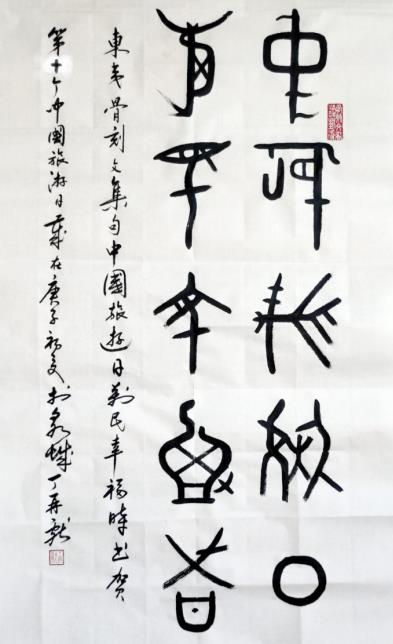 中國旅遊日
萬民幸福時
東夷骨刻文集句中國旅遊日萬民幸福時书贺
第十个中國旅游日歲在庚子初夏於泉城丁再獻